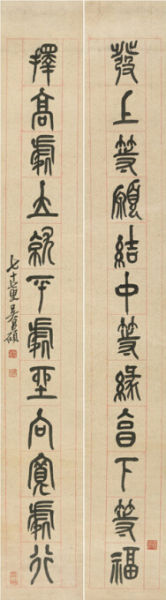 發上等願結中等緣亯下等福
擇高處立就平處坐向寬處行
七十七叟吳昌碩